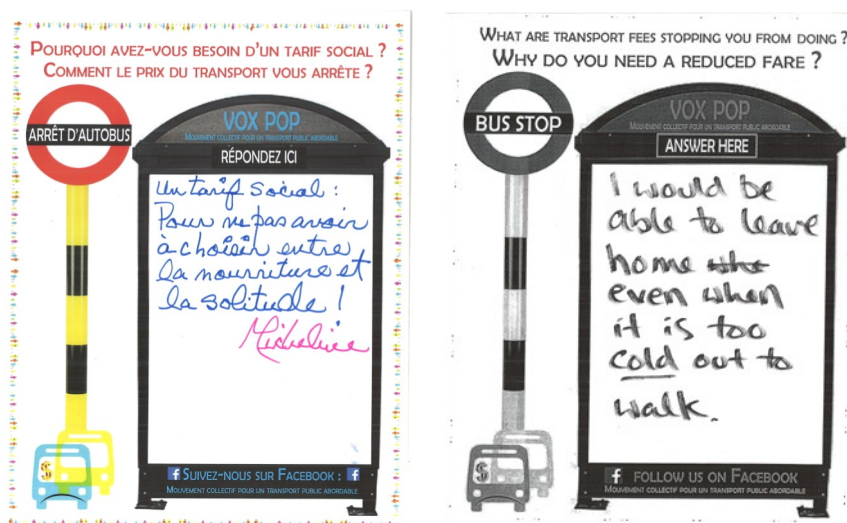 POURQUOI AVEZ-VOUS BESOIN D'UN TARIF SOCIAL ?
COMMENT LE PRIX DU TRANSPORT VOUS ARRÊTE ?
ARRÊT D'AUTOBUS
VOX POP
MOUVEMENT COLLECTIF POUR UN TRANSPORT PUBLIC ABORDABLE
RÉPONDEZ ICI
Un tarif social :
Pour ne pas avoir
à choisir entre
la nourriture et
la solitude !
Micheline
$
f SUIVEZ-NOUS SUR FACEBOOK : f
MOUVEMENT COLLECTIF POUR UN TRANSPORT PUBLIC ABORDABLE
WHAT ARE TRANSPORT FEES STOPPING YOU FROM DOING ?
WHY DO YOU NEED A REDUCED FARE ?
BUS STOP
VOX POP
MOUVEMENT COLLECTIF POUR UN TRANSPORT PUBLIC ABORDABLE
ANSWER HERE
I would be
able to leave
home
even when
it is too
cold out to
walk.
$
f FOLLOW US ON FACEBOOK
MOUVEMENT COLLECTIF POUR UN TRANSPORT PUBLIC ABORDABLE